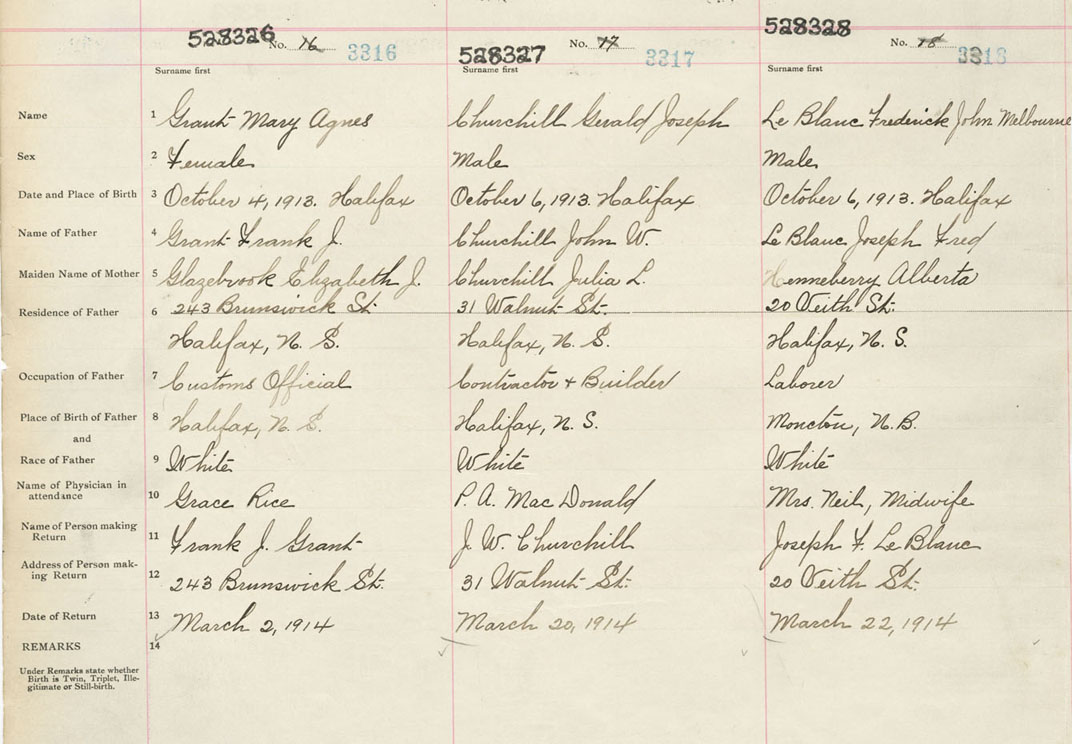 528326 No. 16 3316 528327 No. 17 3317 528328 No. 18 3318
Surname first Surname first Surname first
Name 1 Grant Mary Agnes Churchill Gerald Joseph Le Blanc Frederick John Melbourne
Sex 2 Female Male Male
Date and Place of Birth 3 October 4, 1913. Halifax October 6, 1913. Halifax October 6, 1913. Halifax
Name of Father 4 Grant Frank J. Churchill John W. Le Blanc Joseph Fred
Maiden Name of Mother 5 Glazebrook Elizabeth J. Churchill Julia L. Henneberry Alberta
Residence of Father 6 243 Brunswick St. 31 Walnut St. 20 Veith St.
Halifax, N. S. Halifax, N. S. Halifax, N. S.
Occupation of Father 7 Customs Official Contractor + Builder Laborer
Place of Birth of Father 8 Halifax, N. S. Halifax, N. S. Moncton, N. B.
and
Race of Father 9 White White White
Name of Physician in
attendance 10 Grace Rice P. A. Mac Donald Mrs. Neil, Midwife
Name of Person making
Return 11 Frank J. Grant J. W. Churchill Joseph F. Le Blanc
Address of Person mak-
ing Return 12 243 Brunswick St. 31 Walnut St. 20 Veith St.
Date of Return 13 March 2, 1914 March 20, 1914 March 22, 1914
REMARKS 14
Under Remarks state whether
Birth is Twin, Triplet, Ille-
gitimate or Still-birth.